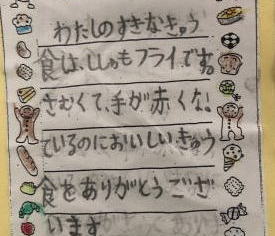 わたしのすきなきゅう
食は、ししゃもフライです。
さむくて、手が赤くなっ
ているのにおいしいきゅう
食をありがとうござ
います